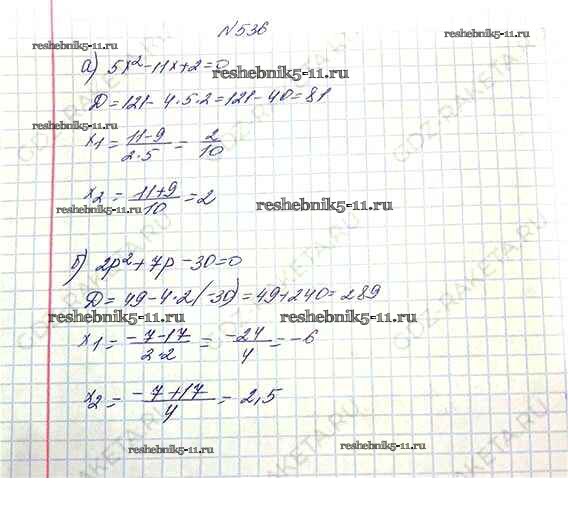 №536
reshebnik5-11.ru reshebnik5-11.ru
а) 5x²-11x+2=0
reshebnik5-11.ru
Д=121-4·5·2=121-40=81
reshebnik5-11.ru
x1=(11-9)/(2·5)=2/10
x2=(11+9)/10=2
reshebnik5-11.ru reshebnik5-11.ru
б) 2p²+7p-30=0
Д=49-4·2(-30)=49+240=289
reshebnik5-11.ru reshebnik5-11.ru
x1=(-7-17)/(2·2)=-24/4=-6
x2=(-7+17)/4=2,5
reshebnik5-11.ru reshebnik5-11.ru
GDZ-RAKETA.RU